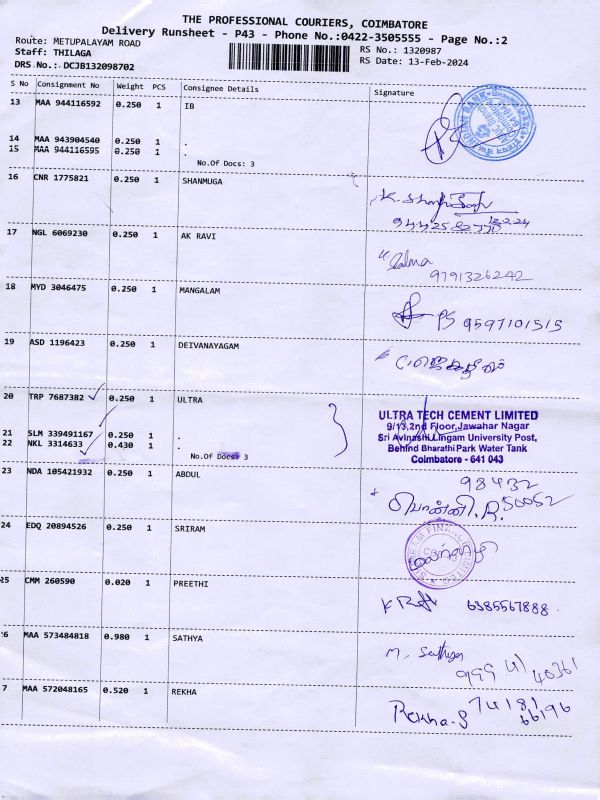 THE PROFESSIONAL COURIERS, COIMBATORE
Delivery Runsheet - P43 - Phone No.:0422-3505555 - Page No.:2
Route: METUPALAYAM ROAD
Staff: THILAGA
DRS No.: DCJB132098702
RS No.: 1320987
RS Date: 13-Feb-2024
S No Consignment No Weight PCS Consignee Details Signature
13 MAA 944116592 0.250 1 IB
14 MAA 943904540 0.250 1 .
15 MAA 944116595 0.250 1 .
No.Of Docs: 3
16 CNR 1775821 0.250 1 SHANMUGA
13.2.24
17 NGL 6069230 0.250 1 AK RAVI
9791326242
18 MYD 3046475 0.250 1 MANGALAM
PS 9597101515
19 ASD 1196423 0.250 1 DEIVANAYAGAM
20 TRP 7687382 0.250 1 ULTRA
21 SLM 339491167 0.250 1 .
22 NKL 3314633 0.430 1 .
No.Of Docs 3
ULTRA TECH CEMENT LIMITED
9/13,2nd Floor,Jawahar Nagar
Sri Avinashi Lingam University Post,
Behind Bharathi Park Water Tank
Coimbatore - 641 043
23 NDA 105421932 0.250 1 ABDUL
98432
பொன்னி.R. 50052
24 EDQ 20894526 0.250 1 SRIRAM
25 CMM 260590 0.020 1 PREETHI
6385567888
26 MAA 573484818 0.980 1 SATHYA
M. Sathya
7 MAA 572048165 0.520 1 REKHA
Rekha.S 74181
66196